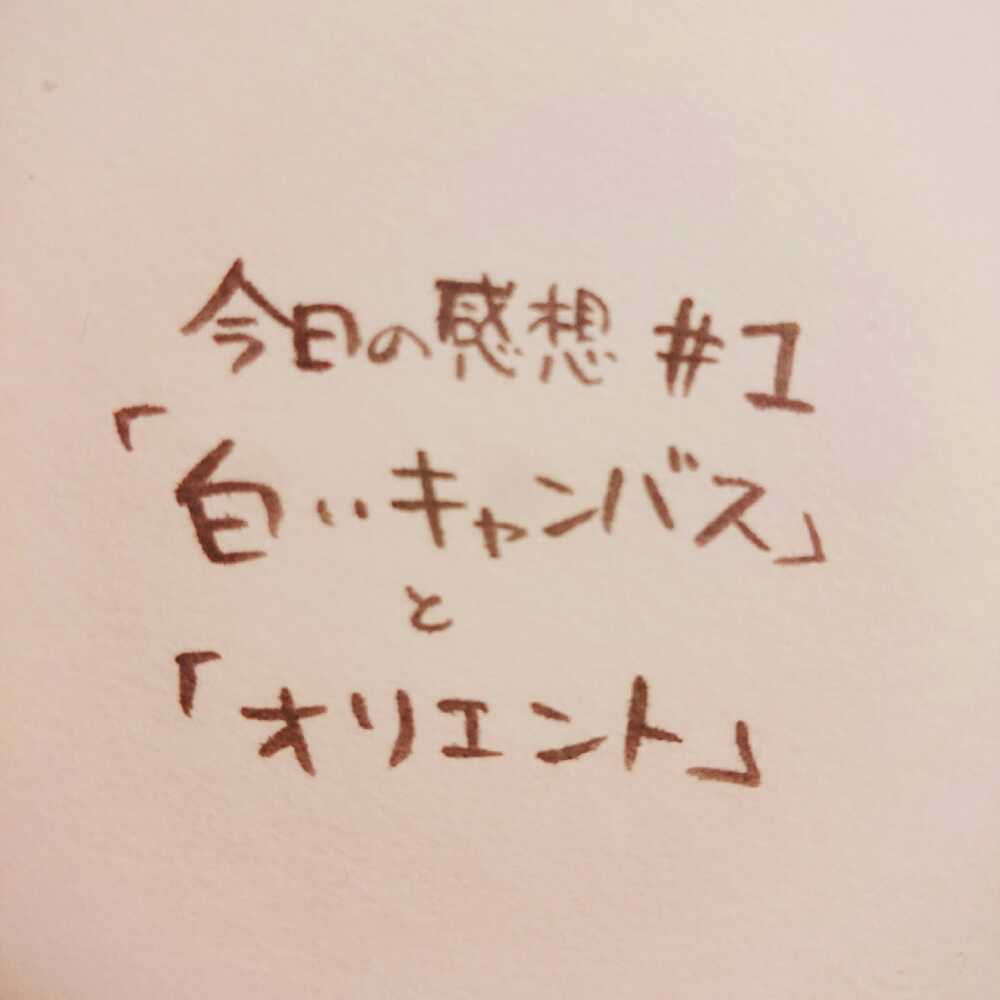 今日の感想 #1
「白いキャンバス」
と
「オリエント」